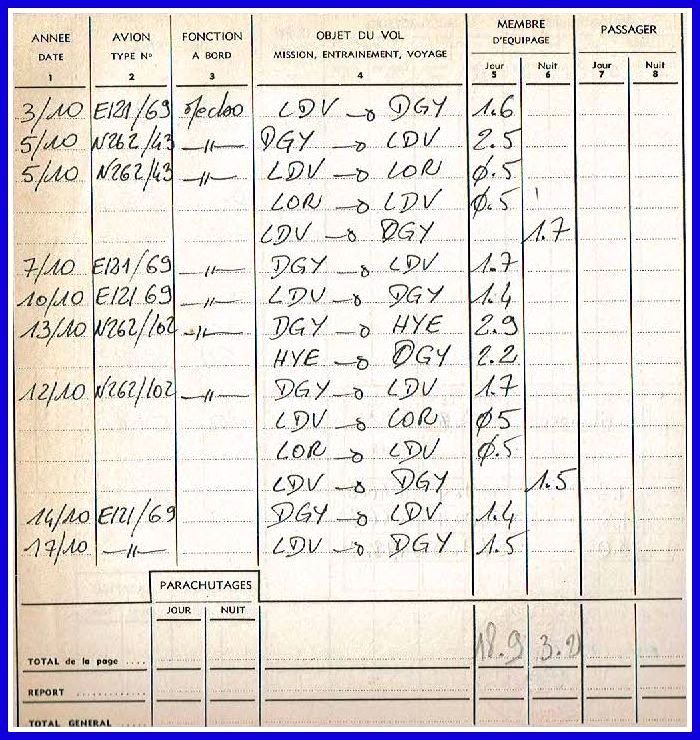 ANNEE AVION FONCTION OBJET DU VOL MEMBRE D'EQUIPAGE PASSAGER
DATE TYPE N° A BORD MISSION, ENTRAINEMENT, VOYAGE Jour Nuit Jour Nuit
1 2 3 4 5 6 7 8
3/10 E121/69 mecano LDV → DGY 1.6
5/10 N262/43 —〃— DGY → LDV 2.5
5/10 N262/43 —〃— LDV → LOR Ø.5
LOR → LDV Ø.5
LDV → DGY 1.7
7/10 E121/69 —〃— DGY → LDV 1.7
10/10 E121 69 —〃— LDV → DGY 1.4
13/10 N262/102 —〃— DGY → HYE 2.9
HYE → DGY 2.2
12/10 N262/102 —〃— DGY → LDV 1.7
LDV → LOR Ø5
LOR → LDV Ø.5
LDV → DGY 1.5
14/10 E121/69 DGY → LDV 1.4
17/10 —〃— LDV → DGY 1.5
PARACHUTAGES
JOUR NUIT
TOTAL de la page .... 18.9 3.2
REPORT ............
TOTAL GENERAL ....